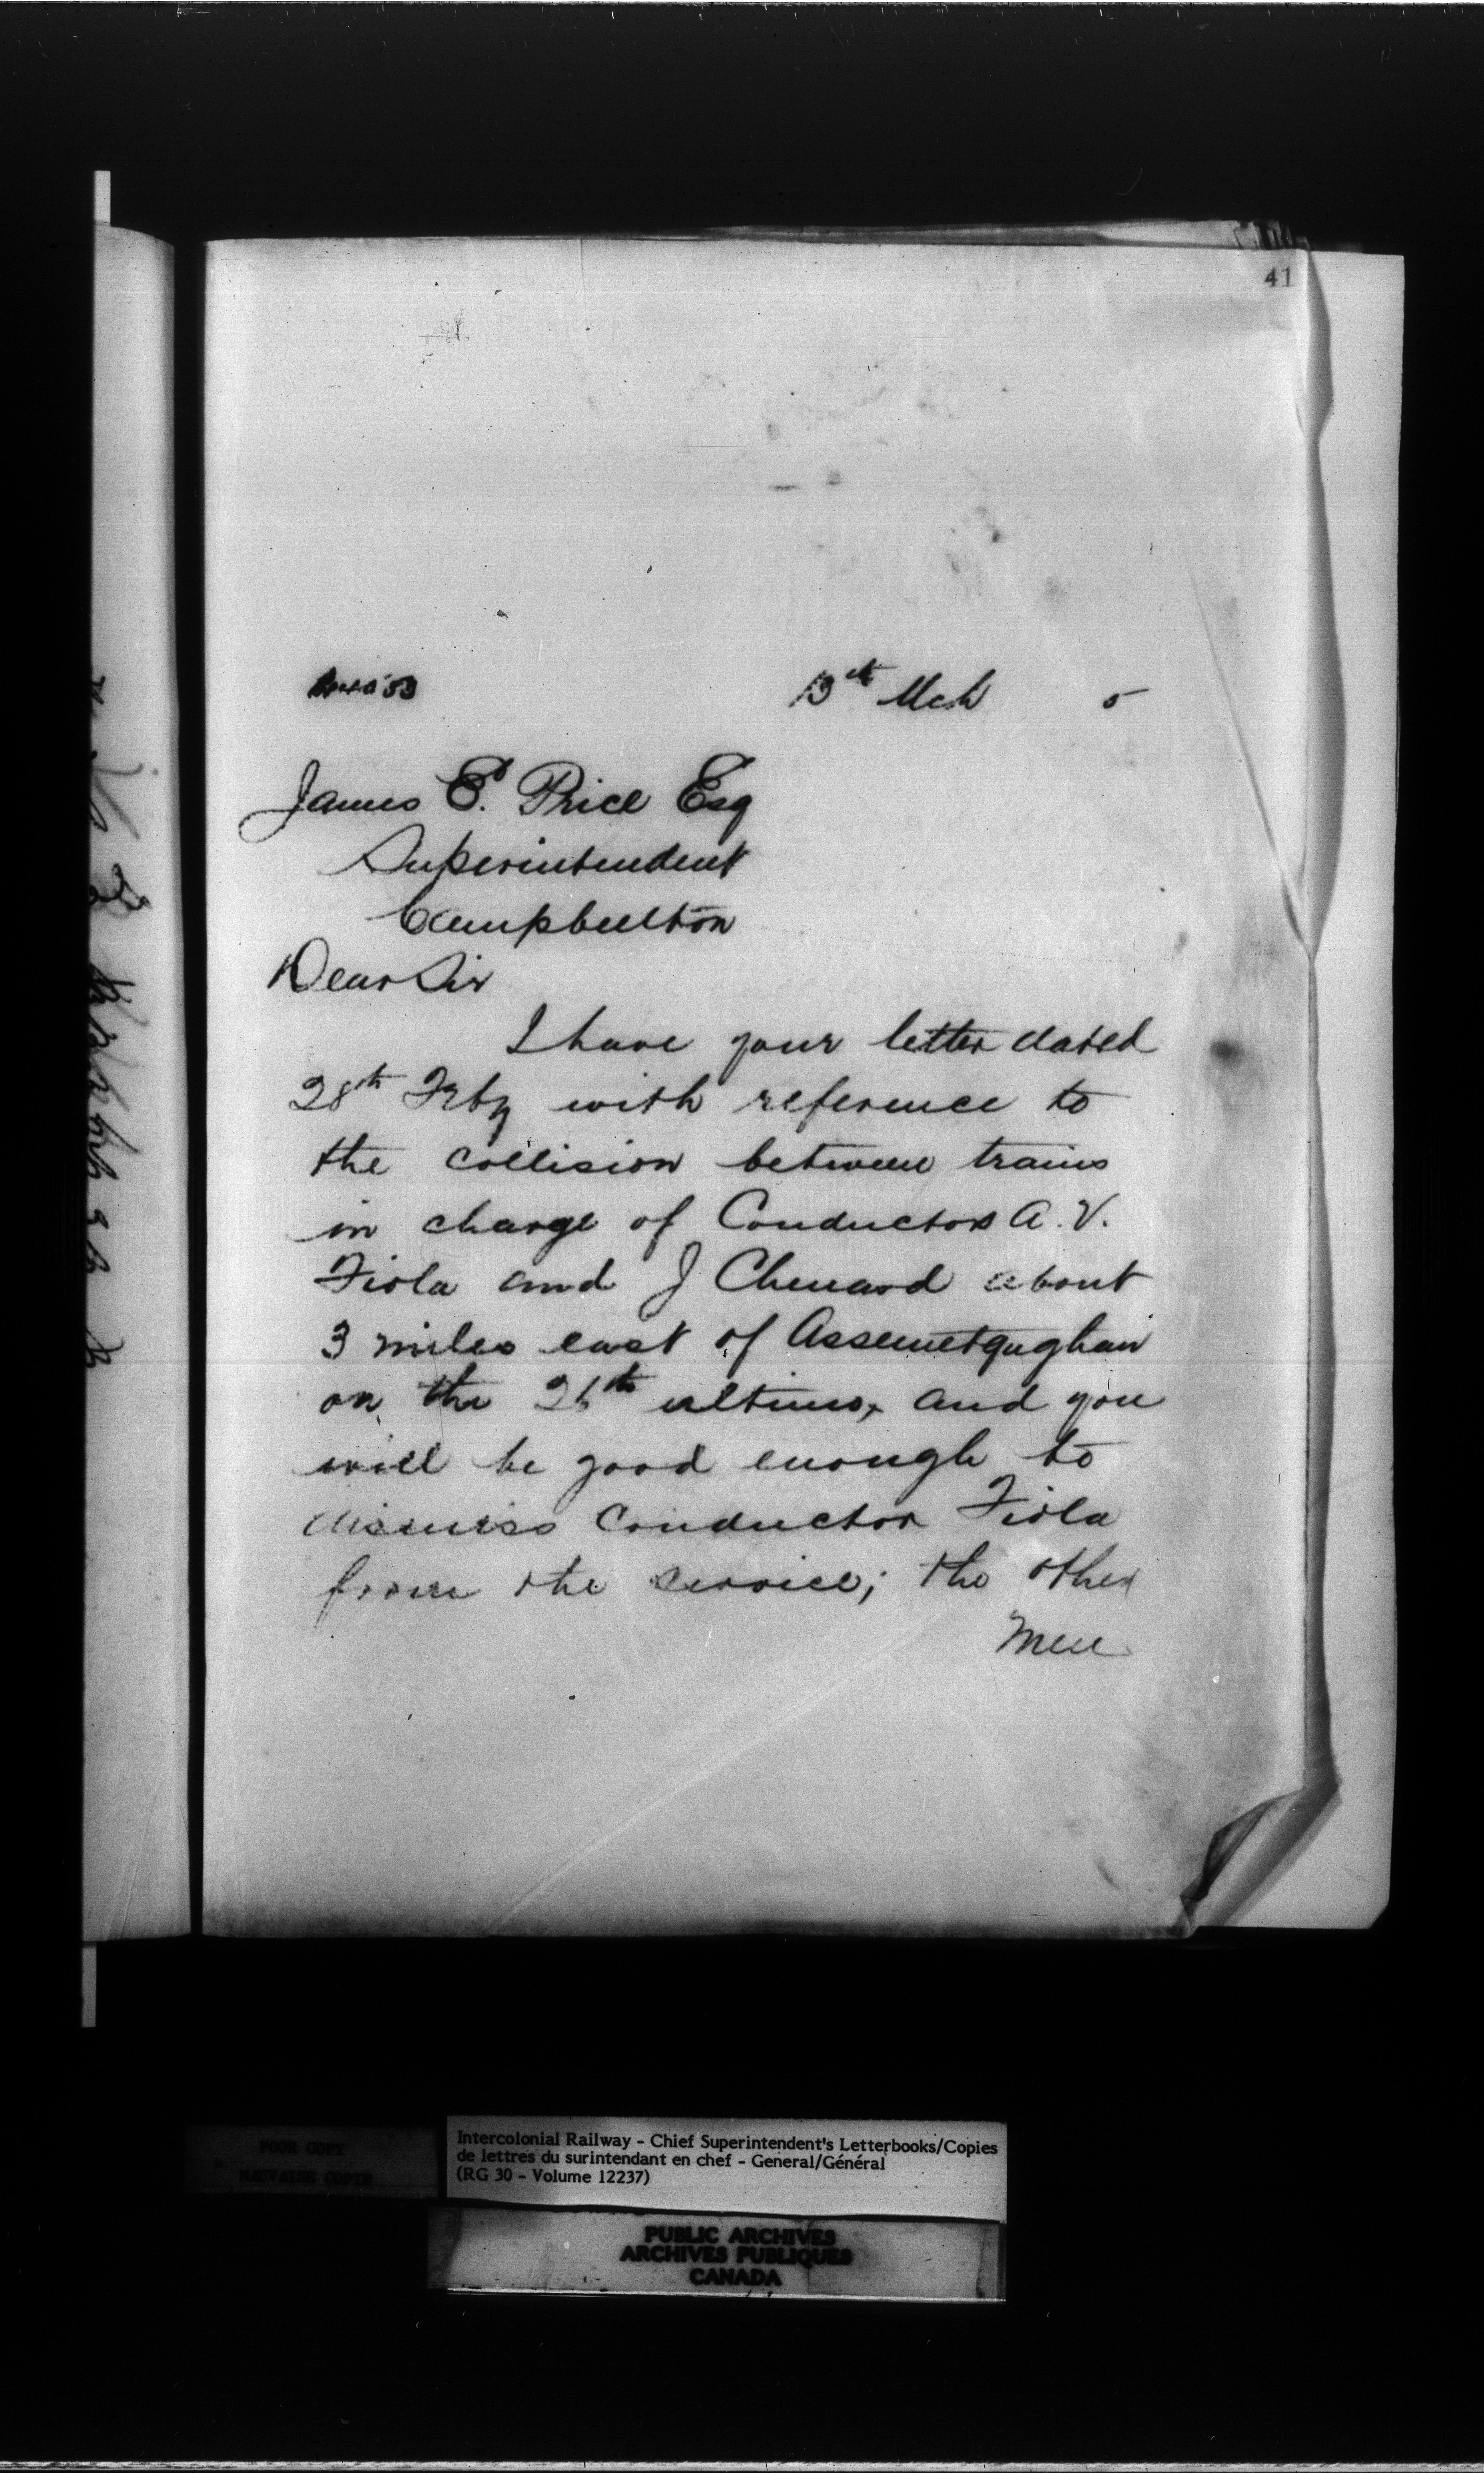 41
13th Mch 5
James E. Price Esq
Superintendent
Campbellton
Dear Sir
I have your letter dated
28th Feby with reference to
the collision between trains
in charge of Conductors A. V.
Fiola and J Chenard about
3 miles east of Assemetqughan
on the 26th ultimo, and you
will be good enough to
dismiss Conductor Fiola
from the service; the other
Men
POOR COPY
MAUVAISE COPIE
Intercolonial Railway - Chief Superintendent's Letterbooks/Copies
de lettres du surintendant en chef - General/Général
(RG 30 - Volume 12237)
PUBLIC ARCHIVES
ARCHIVES PUBLIQUES
CANADA